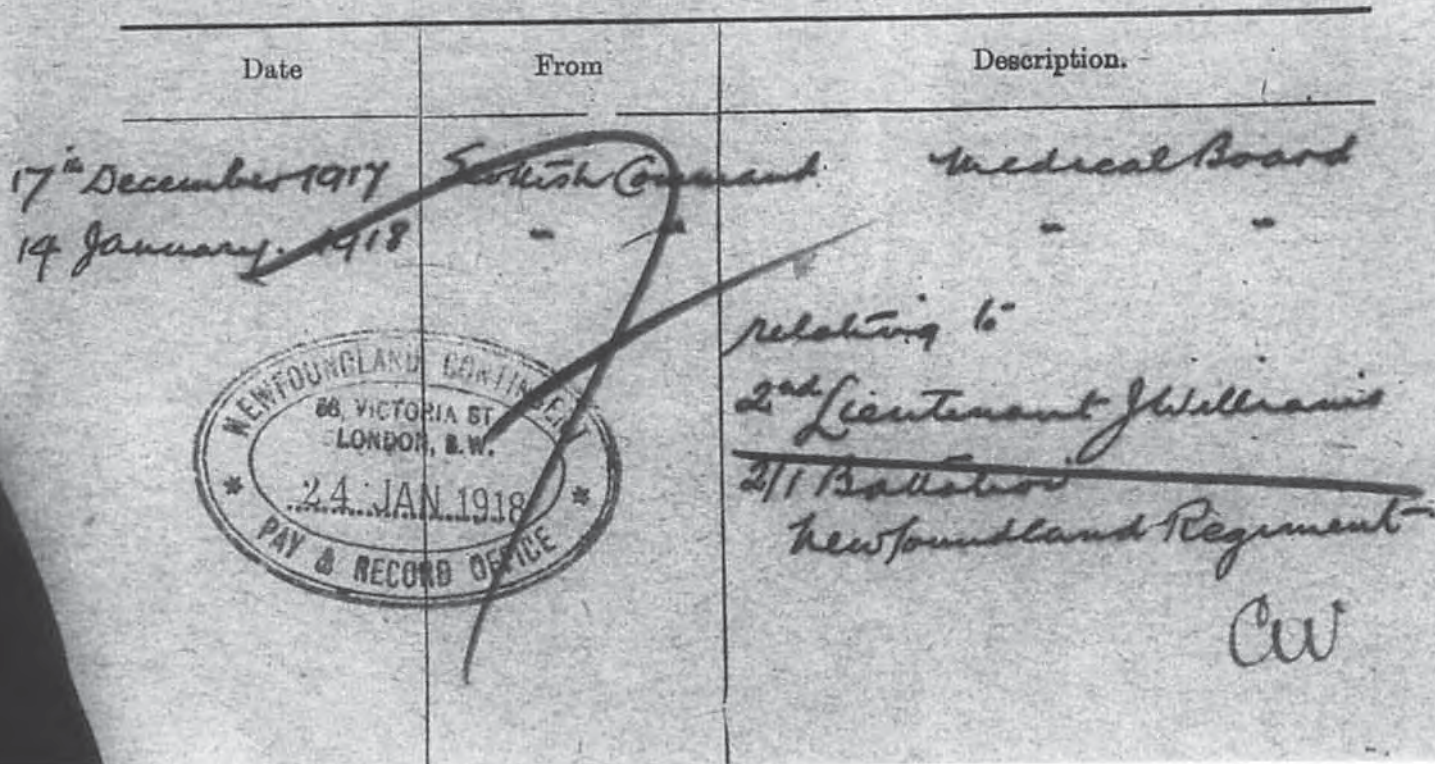 Date From Description.
17th December 1917 Scottish Command Medical Board
14 January. 1918 " " " "
relating to
2nd Lieutenant J Williams
2/1 Battalion
Newfoundland Regiment
CW
NEWFOUNDLAND CONTINGENT
58, VICTORIA ST
LONDON, S.W.
24 JAN 1918
PAY & RECORD OFFICE